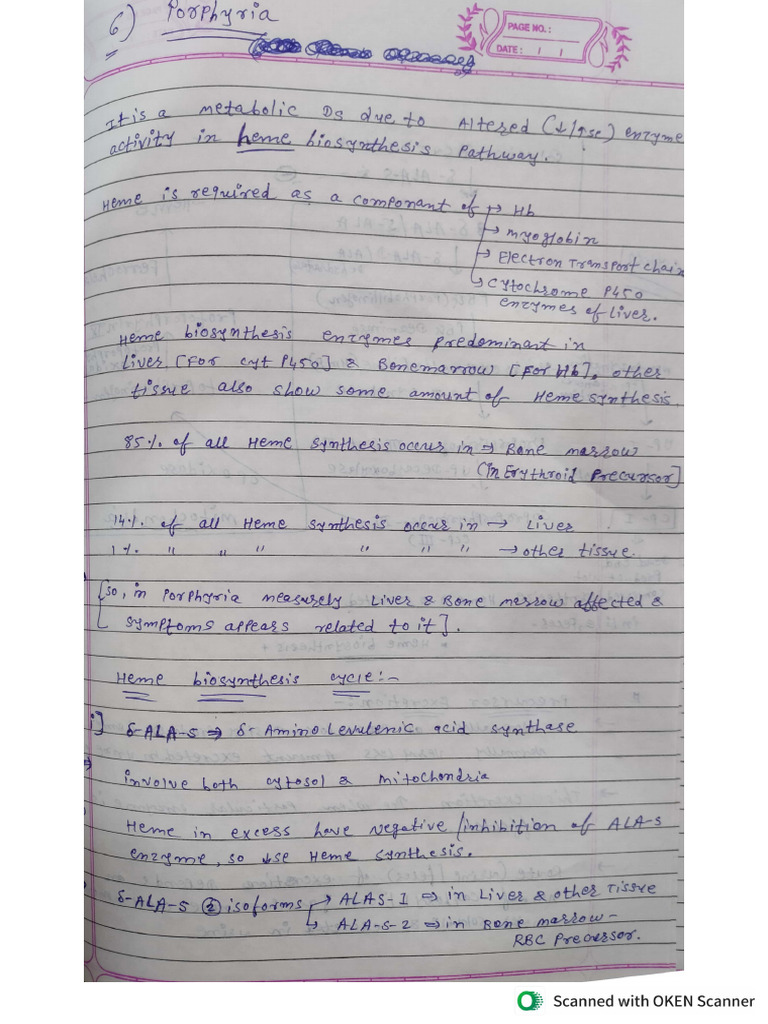 6) Porphyria
PAGE NO.:
DATE: / /
It is a metabolic Ds due to Altered (↓/↑se) enzyme
activity in heme biosynthesis Pathway.
Heme is required as a component of → Hb
→ myoglobin
→ Electron Transport chain
→ Cytochrome P450
enzymes of liver.
Heme biosynthesis enzymes predominant in
Liver [For cyt P450] & Bonemarrow [For Hb], other
tissue also show some amount of Heme synthesis.
85%. of all Heme synthesis occurs in → Bone marrow
(in Erythroid Precursor]
14%. of all Heme synthesis occurs in → Liver
1%. " " " " " " → other tissue.
[so, in Porphyria measurely Liver & Bone merrow affected &
symptoms appears related to it].
Heme biosynthesis cycle:-
i] δ-ALA-S ⇒ δ-Amino Levulenic acid synthase
⇒ involve both cytosol & Mitochondria
Heme in excess have Negative/inhibition of ALA-S
enzyme, so ↓se Heme synthesis.
δ-ALA-S ② isoforms → ALAS-I ⇒ in Liver & other Tissue
→ ALA-S-2 ⇒ in Bone marrow-
RBC Precursor.
Scanned with OKEN Scanner